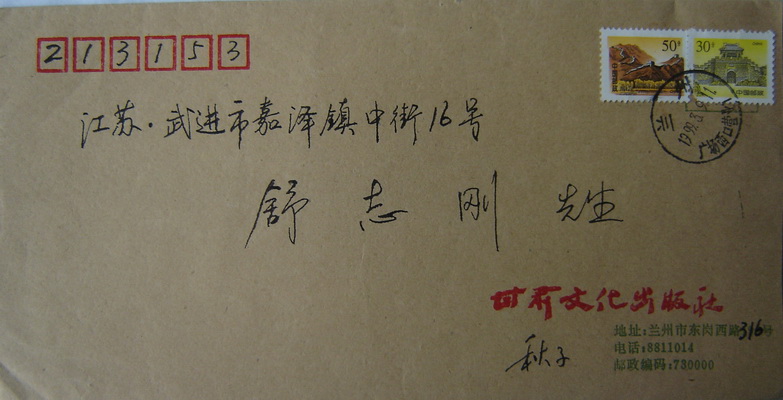 213153
50分
30分
中国邮政
江苏·武进市嘉泽镇中街16号
舒志刚 先生
甘肃文化出版社
地址:兰州市东岗西路316号
电话:8811014
秋子
邮政编码:730000